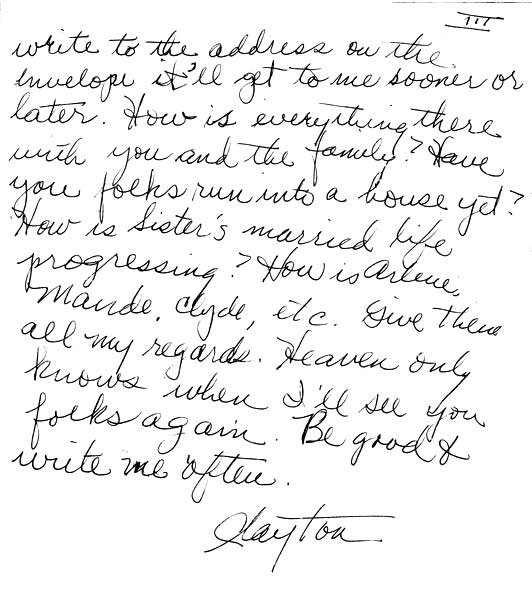 III
write to the address on the
envelope it'll get to me sooner or
later. How is everything there
with you and the family? Have
you folks run into a house yet?
How is Sister's married life
progressing? How is Arlene,
Maude, Clyde, etc. Give them
all my regards. Heaven only
knows when I'll see you
folks again. Be good &
write me often.
Clayton